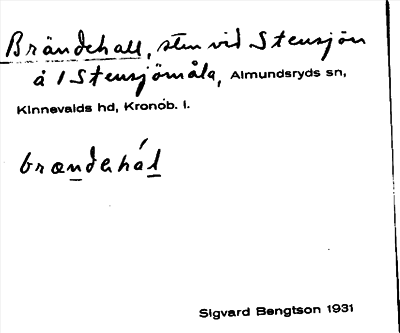 Brändehall, sten vid Stensjön
å 1 Stensjömåla, Almundsryds sn,
Kinnevalds hd, Kronob. l.
brændahál
Sigvard Bengtson 1931